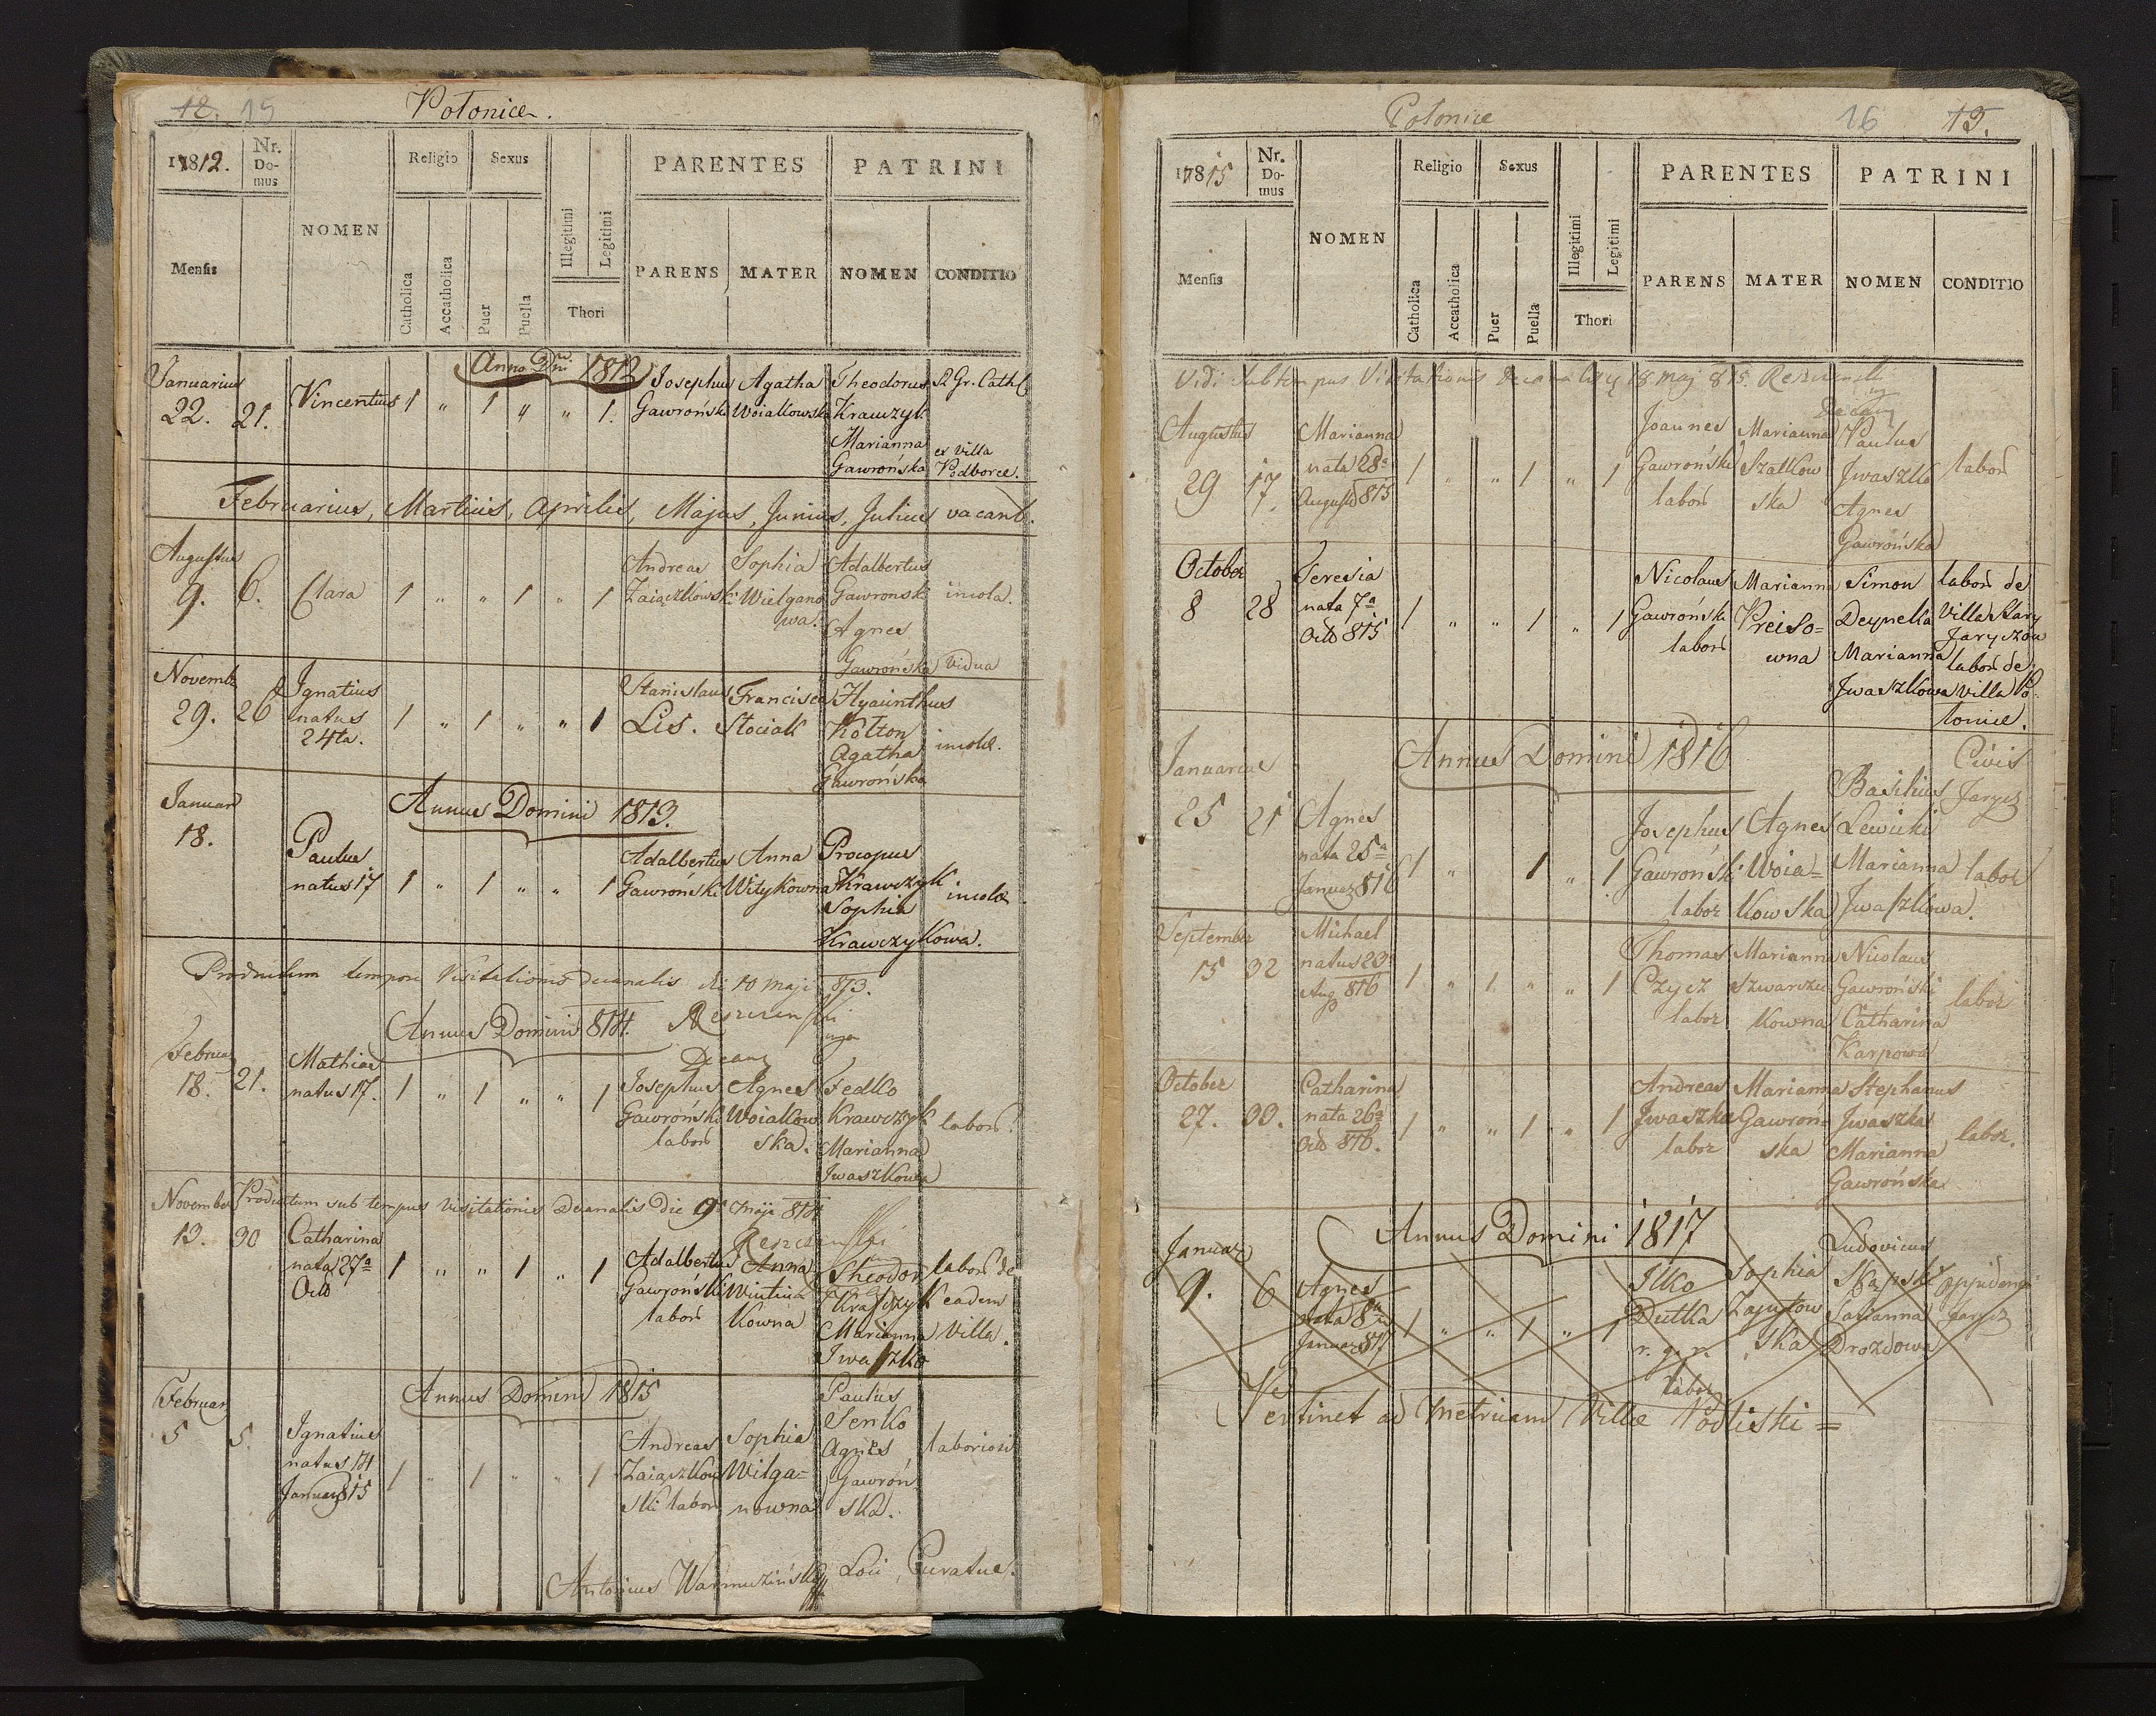 12. 15
Połonice.
1812.
Nr. Do-mus
NOMEN
Religio
Sexus
PARENTES
PATRINI
Mensis
Catholica
Accatholica
Puer
Puella
Illegitimi
Legitimi
Thori
PARENS
MATER
NOMEN
CONDITIO
Anno Dni 1812
Januarius Josephus Agatha Theodorus R. Gr. Cath.
22. 21. Vincentius 1 " 1 " " 1. Gawroński Woiatkowska Krawzyk
Marianna ex villa
Gawrońska Podborce.
Februarius, Martius, Aprilis, Majus, Junius, Julius vacant.
Augustus Andreas Sophia Adalbertus
9. 6. Clara 1 " " 1 " 1 Zaiączkowski Wielgano Gawronski incola.
wa. Agnes
Gawrońska vidua
Novemb Ignatius Stanislaus Francisca Hyacinthus
29. 26 natus 1 " 1 " " 1 Lis. Stociak Kołton
24ta. Agatha incolæ.
Gawrońska
Januar Annus Domini 1813.
18. Paulus Adalbertus Anna Procopus
natus 17 1 " 1 " " 1 Gawroński Witykowna Krawczyk incolæ
Sophia
Krawczykowa.
Productum tempore Visitationis decanalis die 10 maji 813.
Annus Domini 814.
Februar Mathias Josephus Agnes Fedko
18. 21. natus 17. 1 " 1 " " 1 Gawroński Woiatkow Krawczyk labor.
labor ska. Marianna
Iwaszkowa
November Productum sub tempus visitationis Decanalis die 9a Maji 814
13. 30 Catharina
nata 27a 1 " " 1 " 1 Adalbertus Anna Theodor labor de
Octo Gawroński Wintina Krafczyk eadem
labor kowna Marianna Villa.
Iwaszko
Februar Annus Domini 1815 Paulus
5 5. Ignatius Andreas Sophia Senko
natus 14 1 " 1 " " 1 Zaiączkow Wilga= Agnes laboriosi
Januar 815 ski labor nowna Gawroń
ska.
Antonius Warmuziński Loci Curatus.
Połonice
16 13.
1815
Nr. Do-mus
NOMEN
Religio
Sexus
PARENTES
PATRINI
Mensis
Catholica
Accatholica
Puer
Puella
Illegitimi
Legitimi
Thori
PARENS
MATER
NOMEN
CONDITIO
Vidi sub tempus Visitationis Decanalis 18 Maj 815.
Augustus Marianna Joannes Marianna Paulus
29 17. nata 28a 1 " " 1 " 1 Gawroński Szatkow Iwaszko labor
Augusti 815 labor ska Agnes
Gawrońska
October Teresia Nicolaus Marianna Simon labor de
8 28 nata 7a 1 " " 1 " 1 Gawroński Preiso= Deynetta Villa Stary
Octo 815 labor wna Marianna Jaryczow
Iwaszkowa labor de
villa Po-
łonice.
Annus Domini 1816
Januarius Basilius Civis
25 21 Agnes Josephus Agnes Lewicki Jarycz
nata 25a 1 " 1 " 1 Gawroński Woia= Marianna labor
Januar 816 labor kowska Iwaszkowa.
September Michael Thomas Marianna Nicolaus
15 32 natus 23 1 " 1. " " 1 Czycz Szwarczu Gawroński labor
Aug 816 labor kowna Catharina
Karpowa
October Catharina Andreas Marianna Stephanus
27. 33. nata 26a 1 " " 1 " 1 Iwaszka Gawroń Iwaszka labor.
Octo 816. labor ska Marianna
Gawrońska
Annus Domini 1817
Januar Ludovicus
9. 6 Agnes Ilko Sophia
nata 8a 1 " " 1 " 1 Dutka
Januar 817 r. g. r. ska Drozdowa
labor
Pertinet ad Metricam Villæ Podliski=